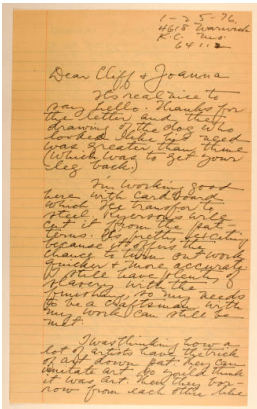 1-25-76,
4618 Warwick
K.C. Mo.
64112
Dear Cliff & Joanna
It's real nice to
say hello. Thanks for
the letter and the
drawing of the dog who
looked like his need
was greater than thine
(which was to get your
leg back.)
I'm working good
here with cardboard
which I transfer to
steel. Ryersons will
cut it from the pat-
terns. It's pretty exciting
because it offers the
chance to turn out work
quicker & more accurate
I still have plenty of
slavery with the
finishing, so my needs
to be a craftsman with
my work can still be
met.
I was thinking how a
lot of artists have the trick
of art down pat. they can
imitate art. You'd think
it was art. Then they bor-
row from each other like